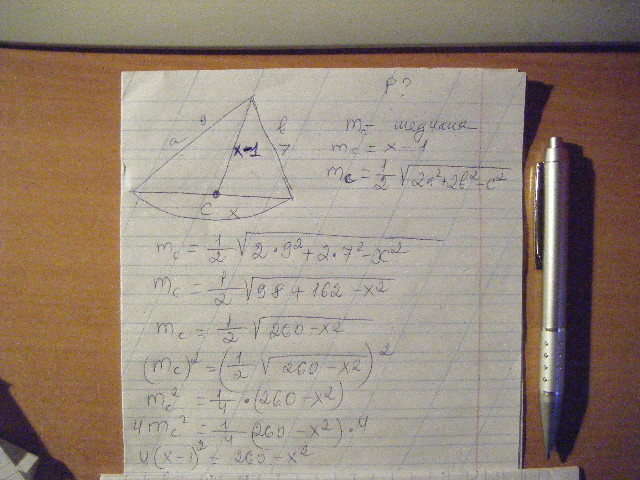 P?
9
a
b
7
x-1
C
x
m_c - медиана
m_c = x - 1
m_c = 1/2 √(2a² + 2b² - c²)
m_c = 1/2 √(2·9² + 2·7² - x²)
m_c = 1/2 √(98 + 162 - x²)
m_c = 1/2 √(260 - x²)
(m_c)² = (1/2 √(260 - x²))²
m_c² = 1/4 · (260 - x²)
4m_c² = 1/4 (260 - x²) · 4
4(x-1)² = 260 - x²